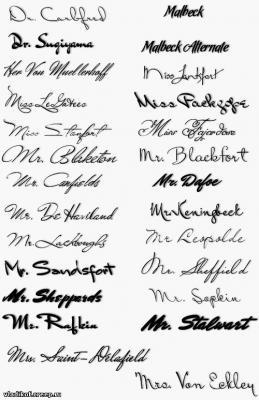 Dr. Carbfred
Dr. Sugiyama
Herr Von Muellerhoff
Miss LeGatees
Miss Stanfort
Mr. Blaketon
Mr. Canfields
Mr. De Haviland
Mr. Lackboughs
Mr. Sandsfort
Mr. Sheppards
Mr. Rafkin
Mrs. Saint-Delafield
Malbeck
Malbeck Alternate
Miss Lankfort
Miss Packgope
Miss Fajardose
Mr. Blackfort
Mr. Dafoe
Mr. Keningbeck
Mr. Leopolde
Mr. Sheffield
Mr. Sopkin
Mr. Stalwart
Mrs. Von Eckley